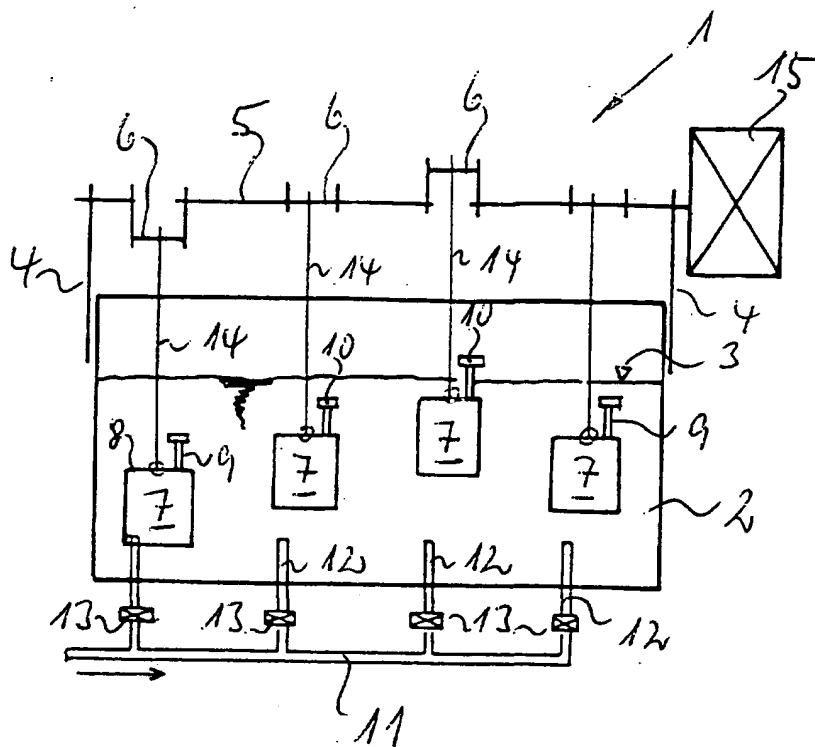 1
15
6
5
6
6
4
14
14
14
4
10
10
3
8
7
9
7
7
7
9
2
12
12
13
13
13
12
11